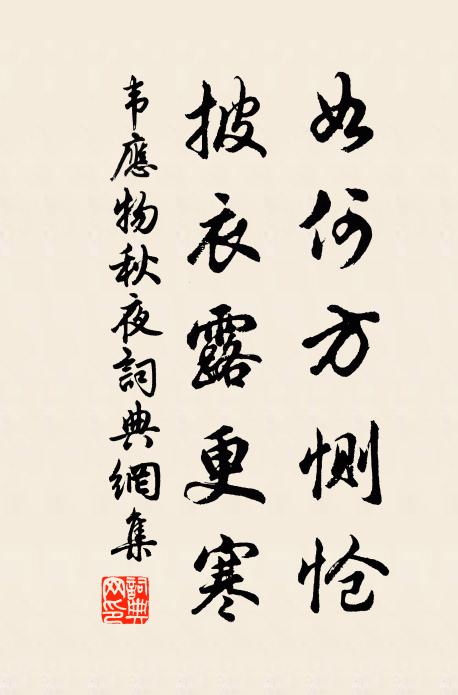 如何方惻愴
披衣露更寒
韦應物秋夜詞典網集
詞典网印